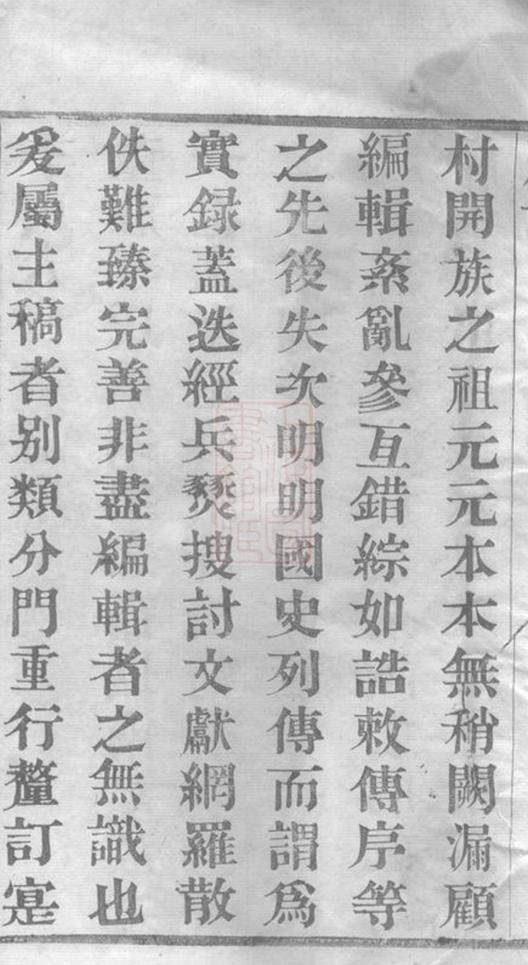 村開族之祖元元本本無稍闕漏顧
編輯紊亂參互錯綜如誥敕傳序等
之先後失次明明國史列傳而謂爲
實録蓋迭經兵燹搜討文獻網羅散
佚難臻完善非盡編輯者之無識也
爰屬主稿者别類分門重行釐訂寔